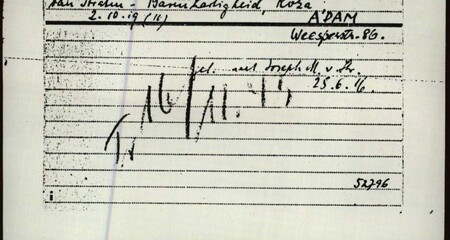 van Straten - Barmhartigheid, Roza
2.10.19 (16) A'DAM
Weesperstr. 86.
gel. met Joseph M. v. Str.
25.6.16.
Tr 16/11.43
52796
i